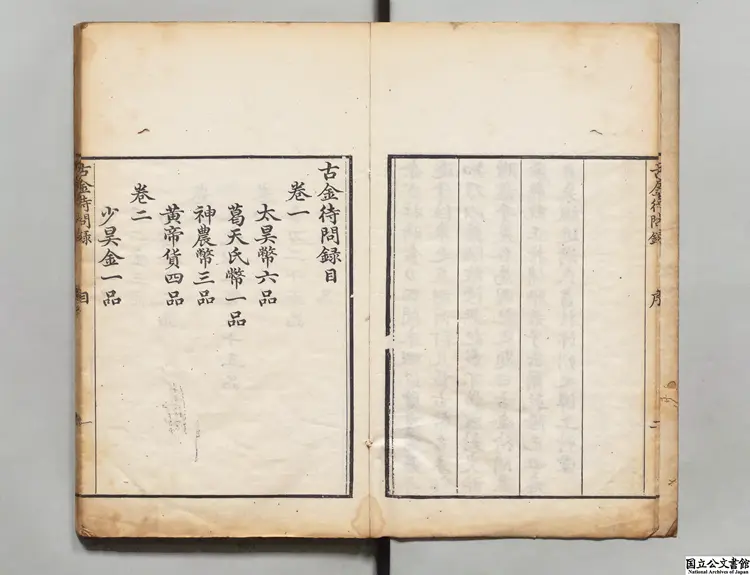 古金待問録
序
二
古金待問録目
卷一
太昊幣六品
葛天氏幣一品
神農幣三品
黄帝貨四品
卷二
少昊金一品
古金待問録
目
一
国立公文書館
National Archives of Japan